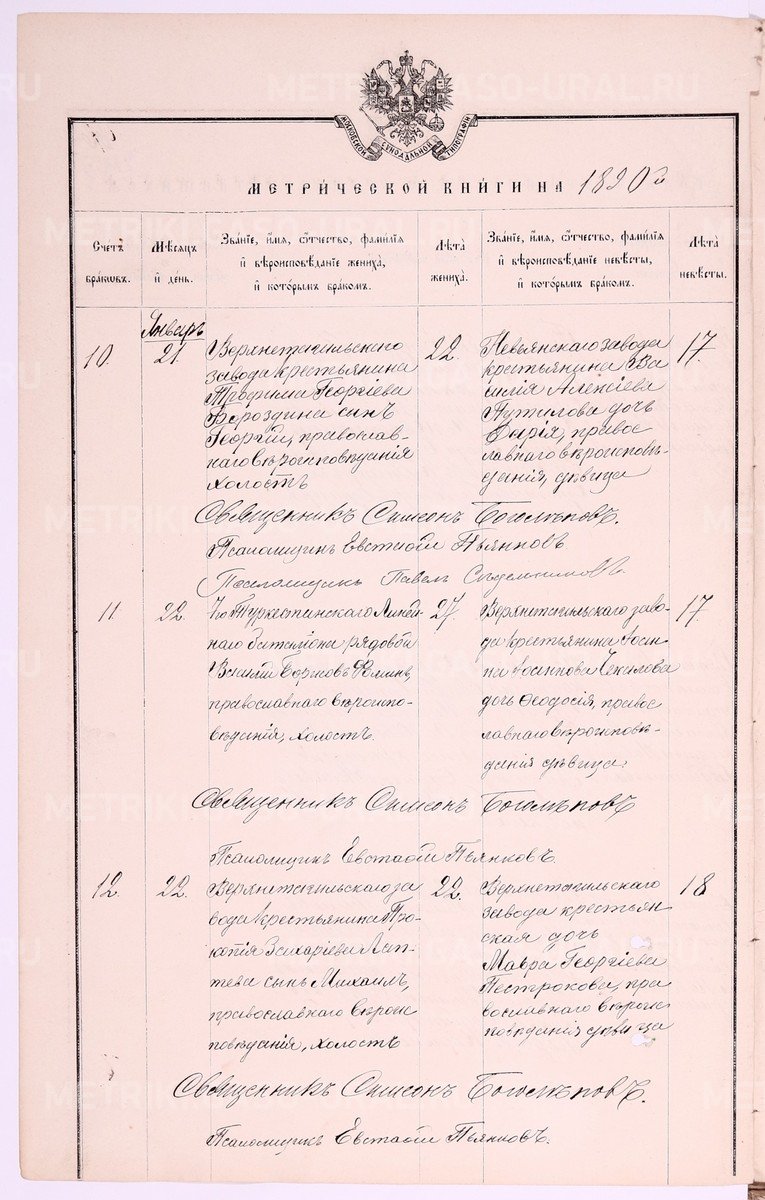 МОСКОВСКОЙ СѴНОДАЛЬНОЙ ТИПОГРАФІИ
МЕТРИЧЕСКОЙ КНИГИ НА 1890 й
Счетъ браковъ.
Мѣсяцъ и день.
Званіе, имя, отчество, фамилія и вѣроисповѣданіе жениха, и которымъ бракомъ.
Лѣта жениха.
Званіе, имя, отчество, фамилія и вѣроисповѣданіе невѣсты, и которымъ бракомъ.
Лѣта невѣсты.
Январь
10. 21.
Верхнетагильскаго
завода крестьянина
Трофима Георгіева
Бороздина сынъ
Георгій, православ-
наго вѣроисповѣданія
холостъ
22.
Невьянскаго завода
крестьянина Ва
силія Алексіева
Путилова дочь
Марія, правос
лавнаго вѣроисповѣ-
данія, дѣвица
17.
Священникъ Симеонъ Боголѣповъ.
Псаломщикъ Евстафій Пьянковъ
Псаломщикъ Павелъ
11. 22.
Туркестанскаго Линей
наго баталіона рядовой
православнаго вѣроиспо-
вѣданія, холостъ.
27.
Верхнетагильскаго заво-
да крестьянина Іоси
па Іосипова Чекилова
дочь Ѳеодосія, правос
лавнаго вѣроисповѣ-
данія дѣвица.
17.
Священникъ Симеонъ Боголѣповъ
Псаломщикъ Евстафій Пьянковъ.
12. 22.
Верхнетагильскаго за
вода крестьянина Про-
копія Захаріева Лап-
тева сынъ Михаилъ,
православнаго вѣроис
повѣданія, холостъ
22.
Верхнетагильскаго
завода крестьян
ская дочь
Мавра Георгіева
Пестрокова, пра
вославнаго вѣроис
повѣданія дѣвица
18
Священникъ Симеонъ Боголѣповъ.
Псаломщикъ Евстафій Пьянковъ.